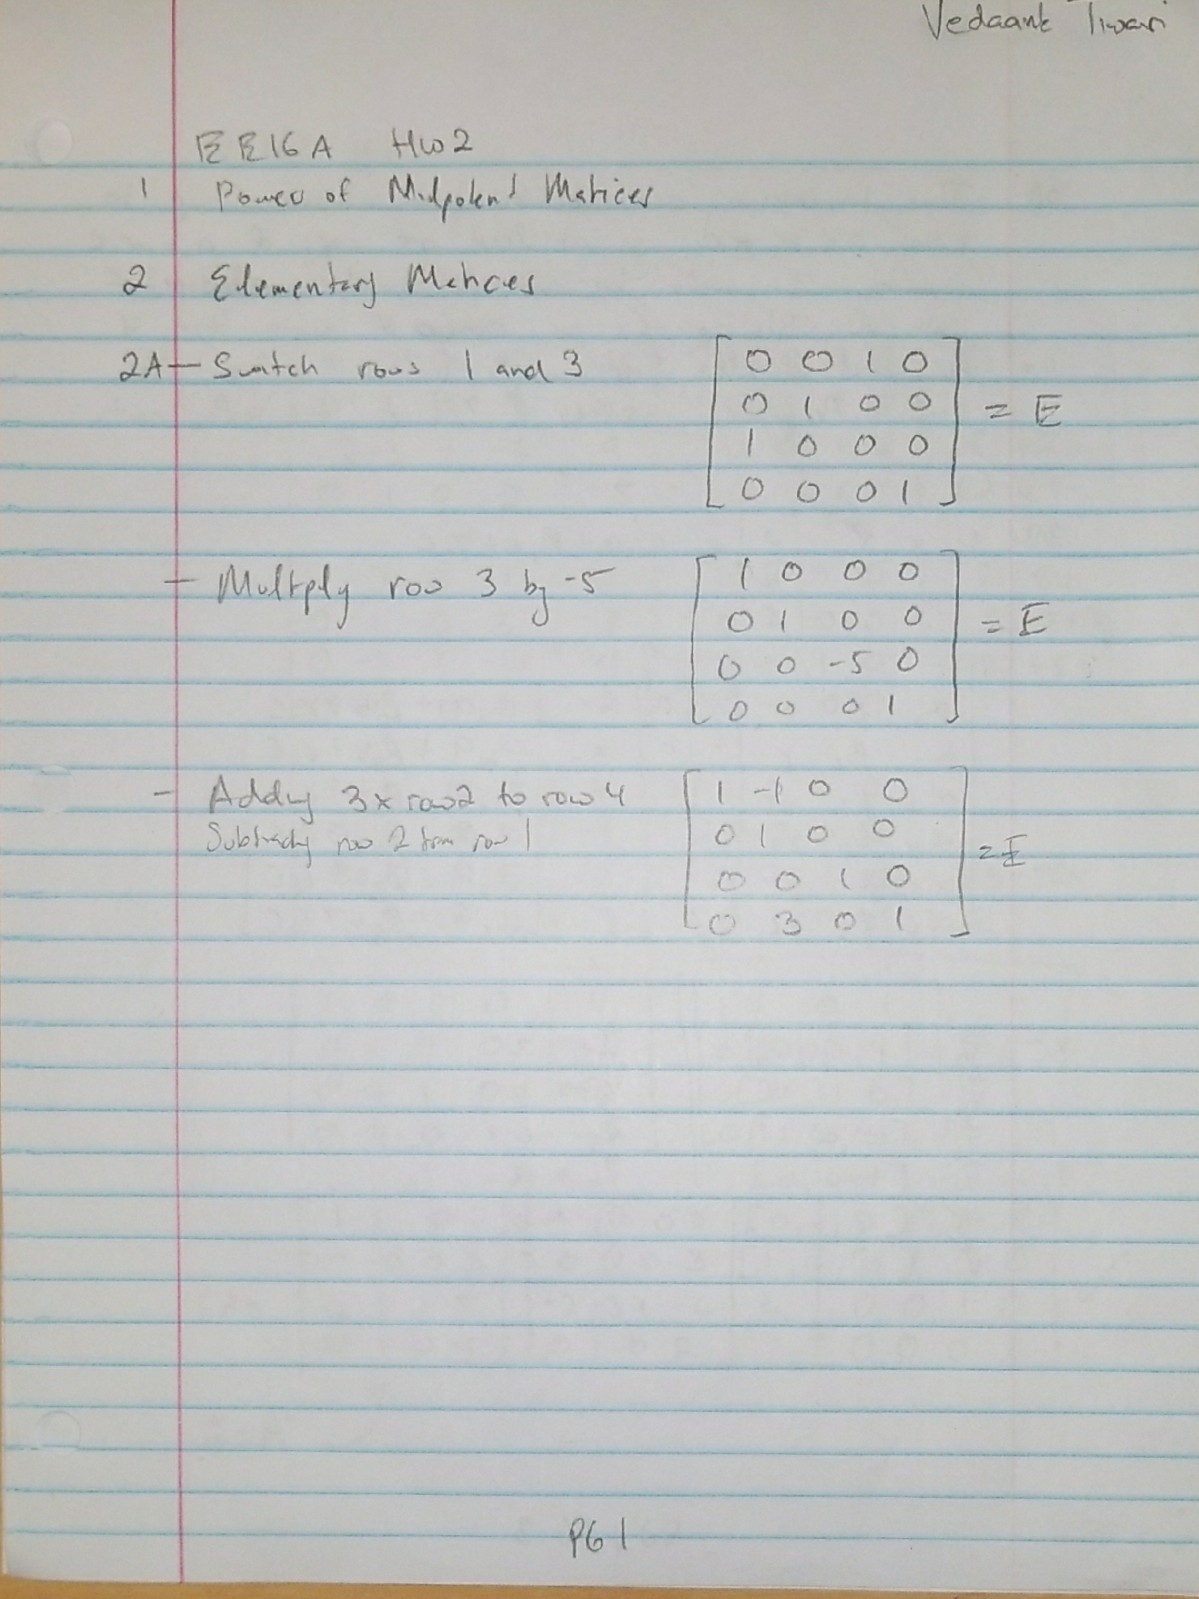 Vedaank Tiwari
EE16A HW2
1 Power of Nilpotent Matrices
2 Elementary Matrices
2A - Switch rows 1 and 3
0 0 1 0
0 1 0 0 = E
1 0 0 0
0 0 0 1
- Multiply row 3 by -5
1 0 0 0
0 1 0 0 = E
0 0 -5 0
0 0 0 1
- Adding 3x row2 to row 4
Subtracting row 2 from row 1
1 -1 0 0
0 1 0 0 = E
0 0 1 0
0 3 0 1
PG 1